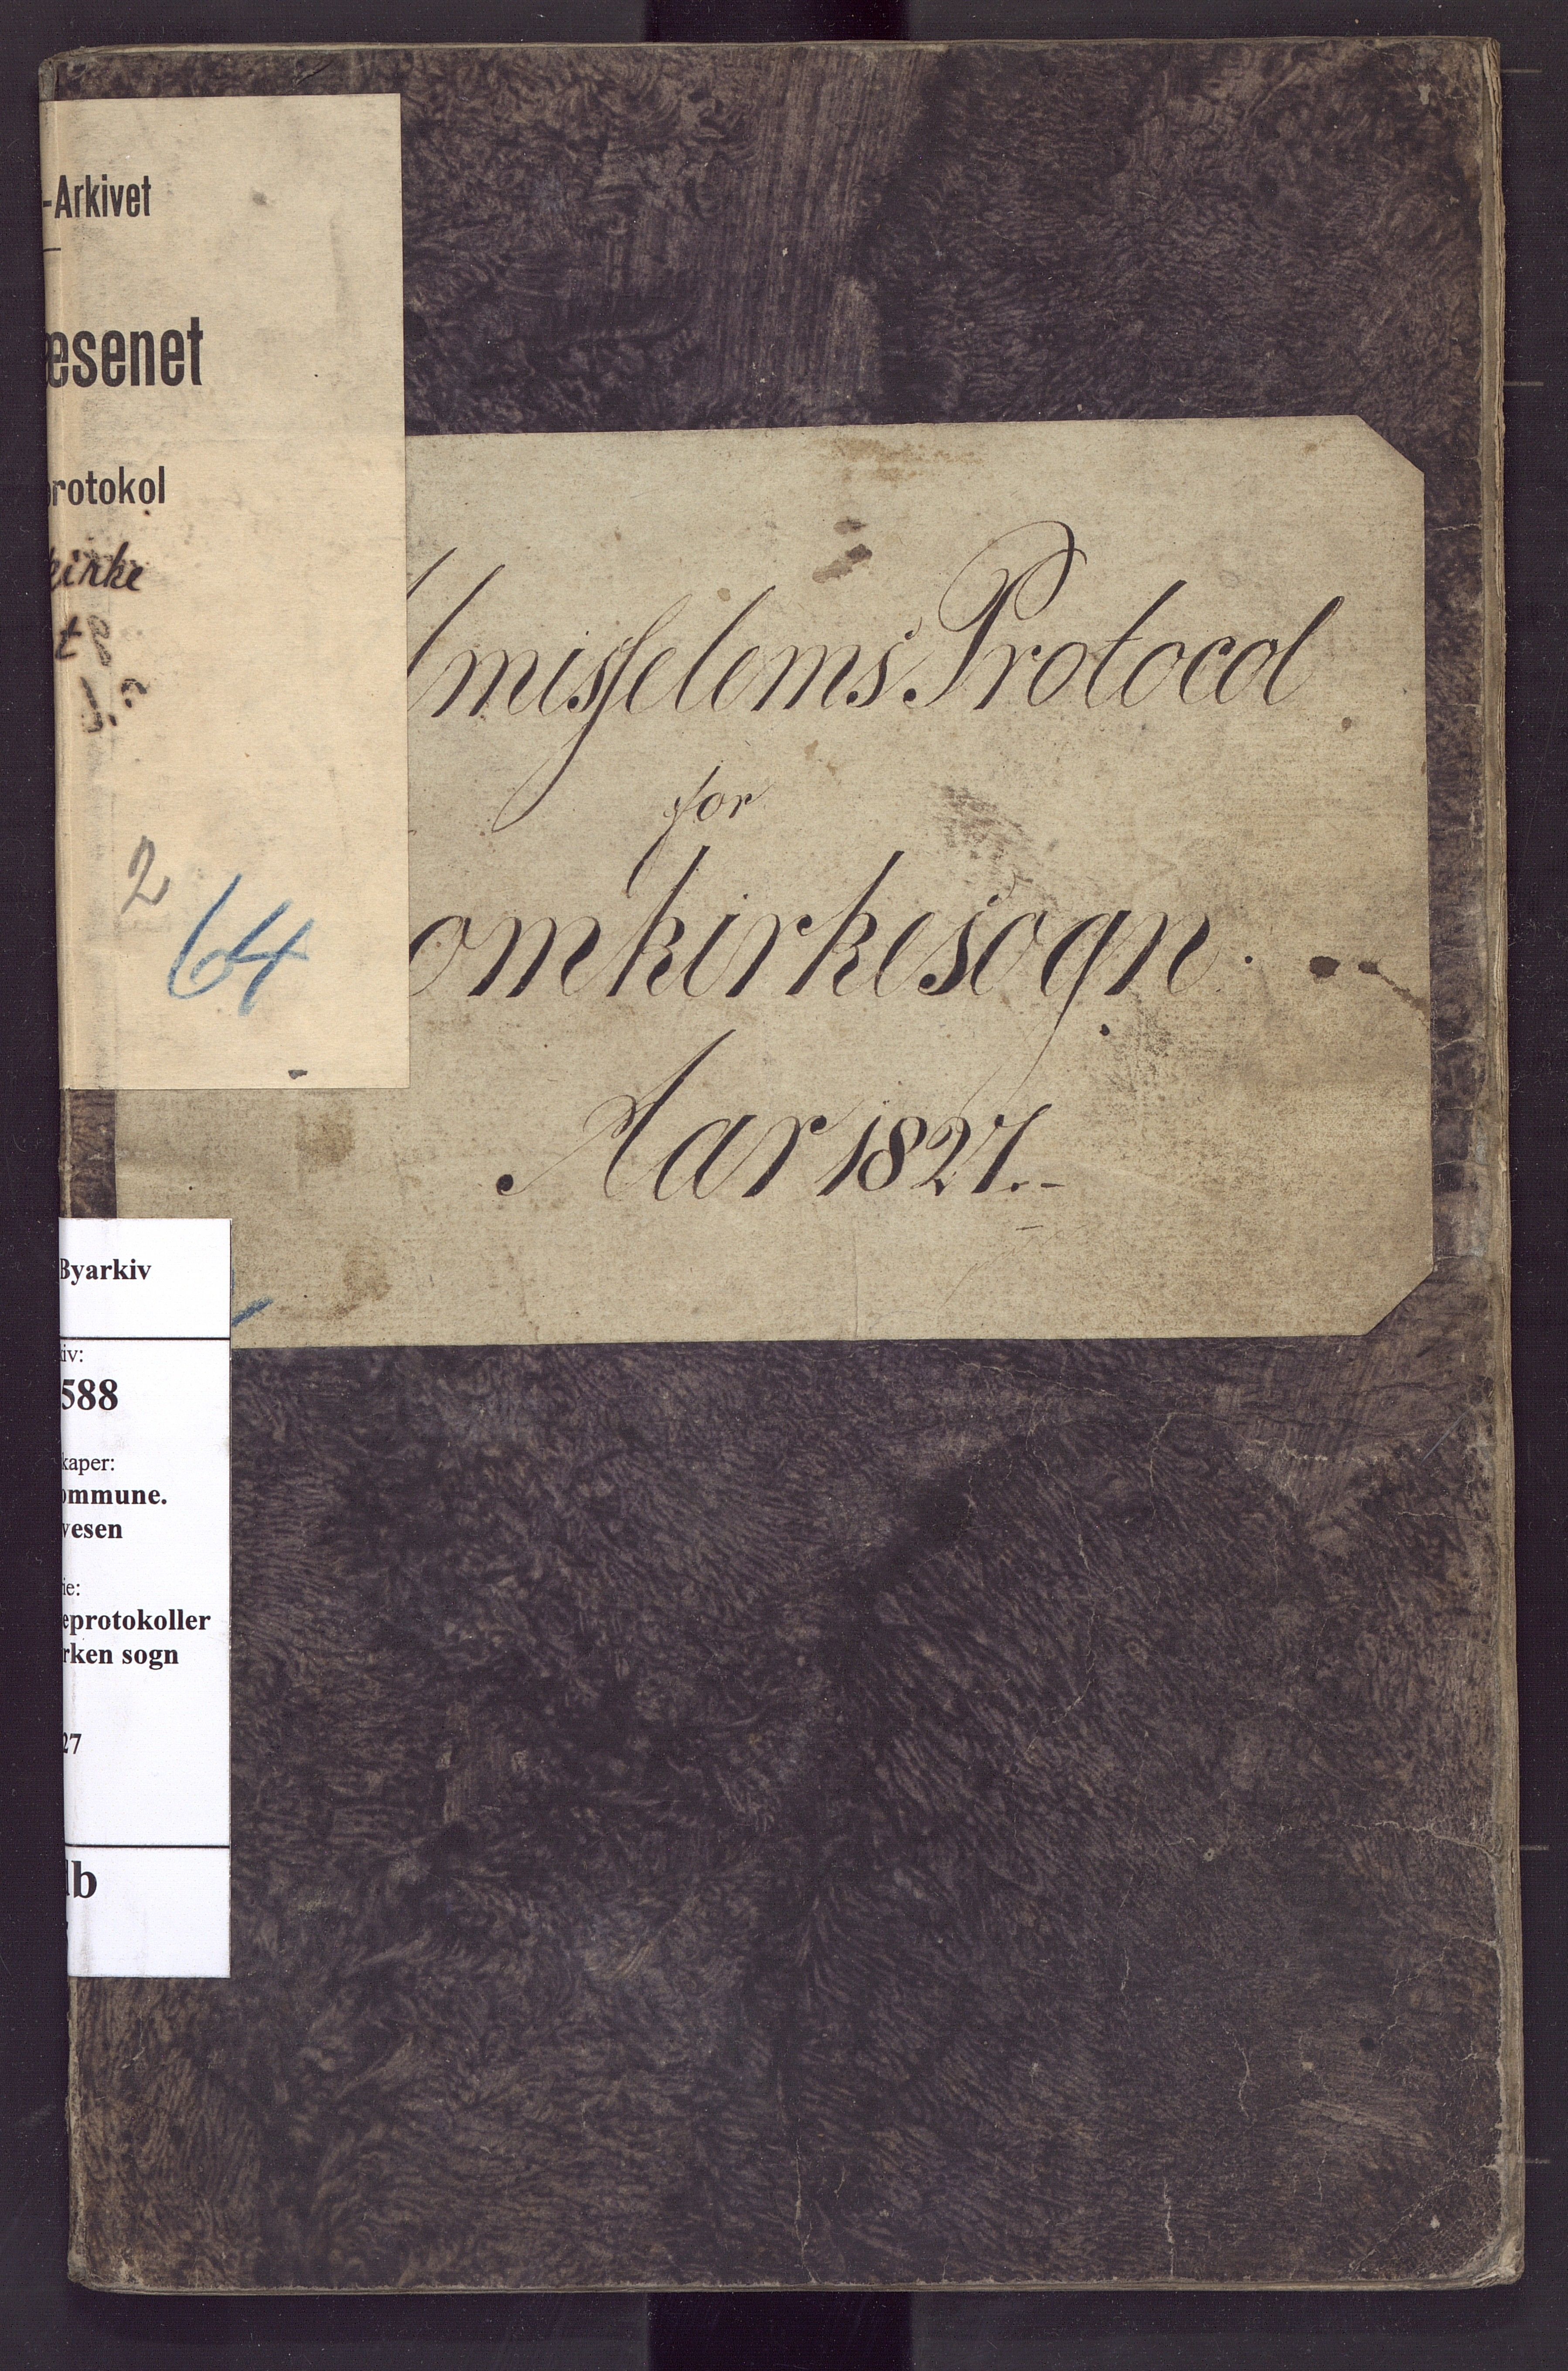 -Arkivet
æsenet
protokol
kirke
t
2
64
lmisselems Protocol
for
omkirkesogn.
Aar 1827.
Byarkiv
iv:
588
kaper:
ommune.
vesen
ie:
eprotokoller
rken sogn
27
lb